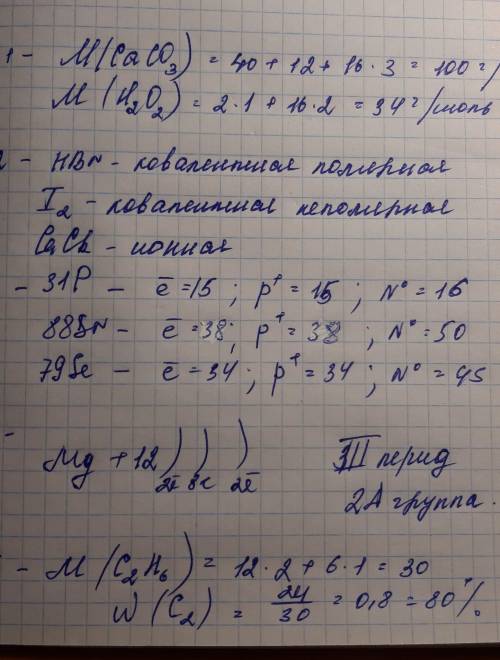 1 - M(CaCO₃) = 40 + 12 + 16 · 3 = 100 г/
M(H₂O₂) = 2 · 1 + 16 · 2 = 34 г/моль
2 - HBr - ковалентная полярная
I₂ - ковалентная неполярная
CaCl₂ - ионная
- 31P - ē = 15 ; p⁺ = 15 ; n° = 16
88Sr - ē = 38 ; p⁺ = 38 ; n° = 50
79Se - ē = 34 ; p⁺ = 34 ; n° = 45
- Mg + 12 ) ) ) III период
2ē 8ē 2ē 2А группа.
- M(C₂H₆) = 12 · 2 + 6 · 1 = 30
W(C₂) = 24/30 = 0,8 = 80%